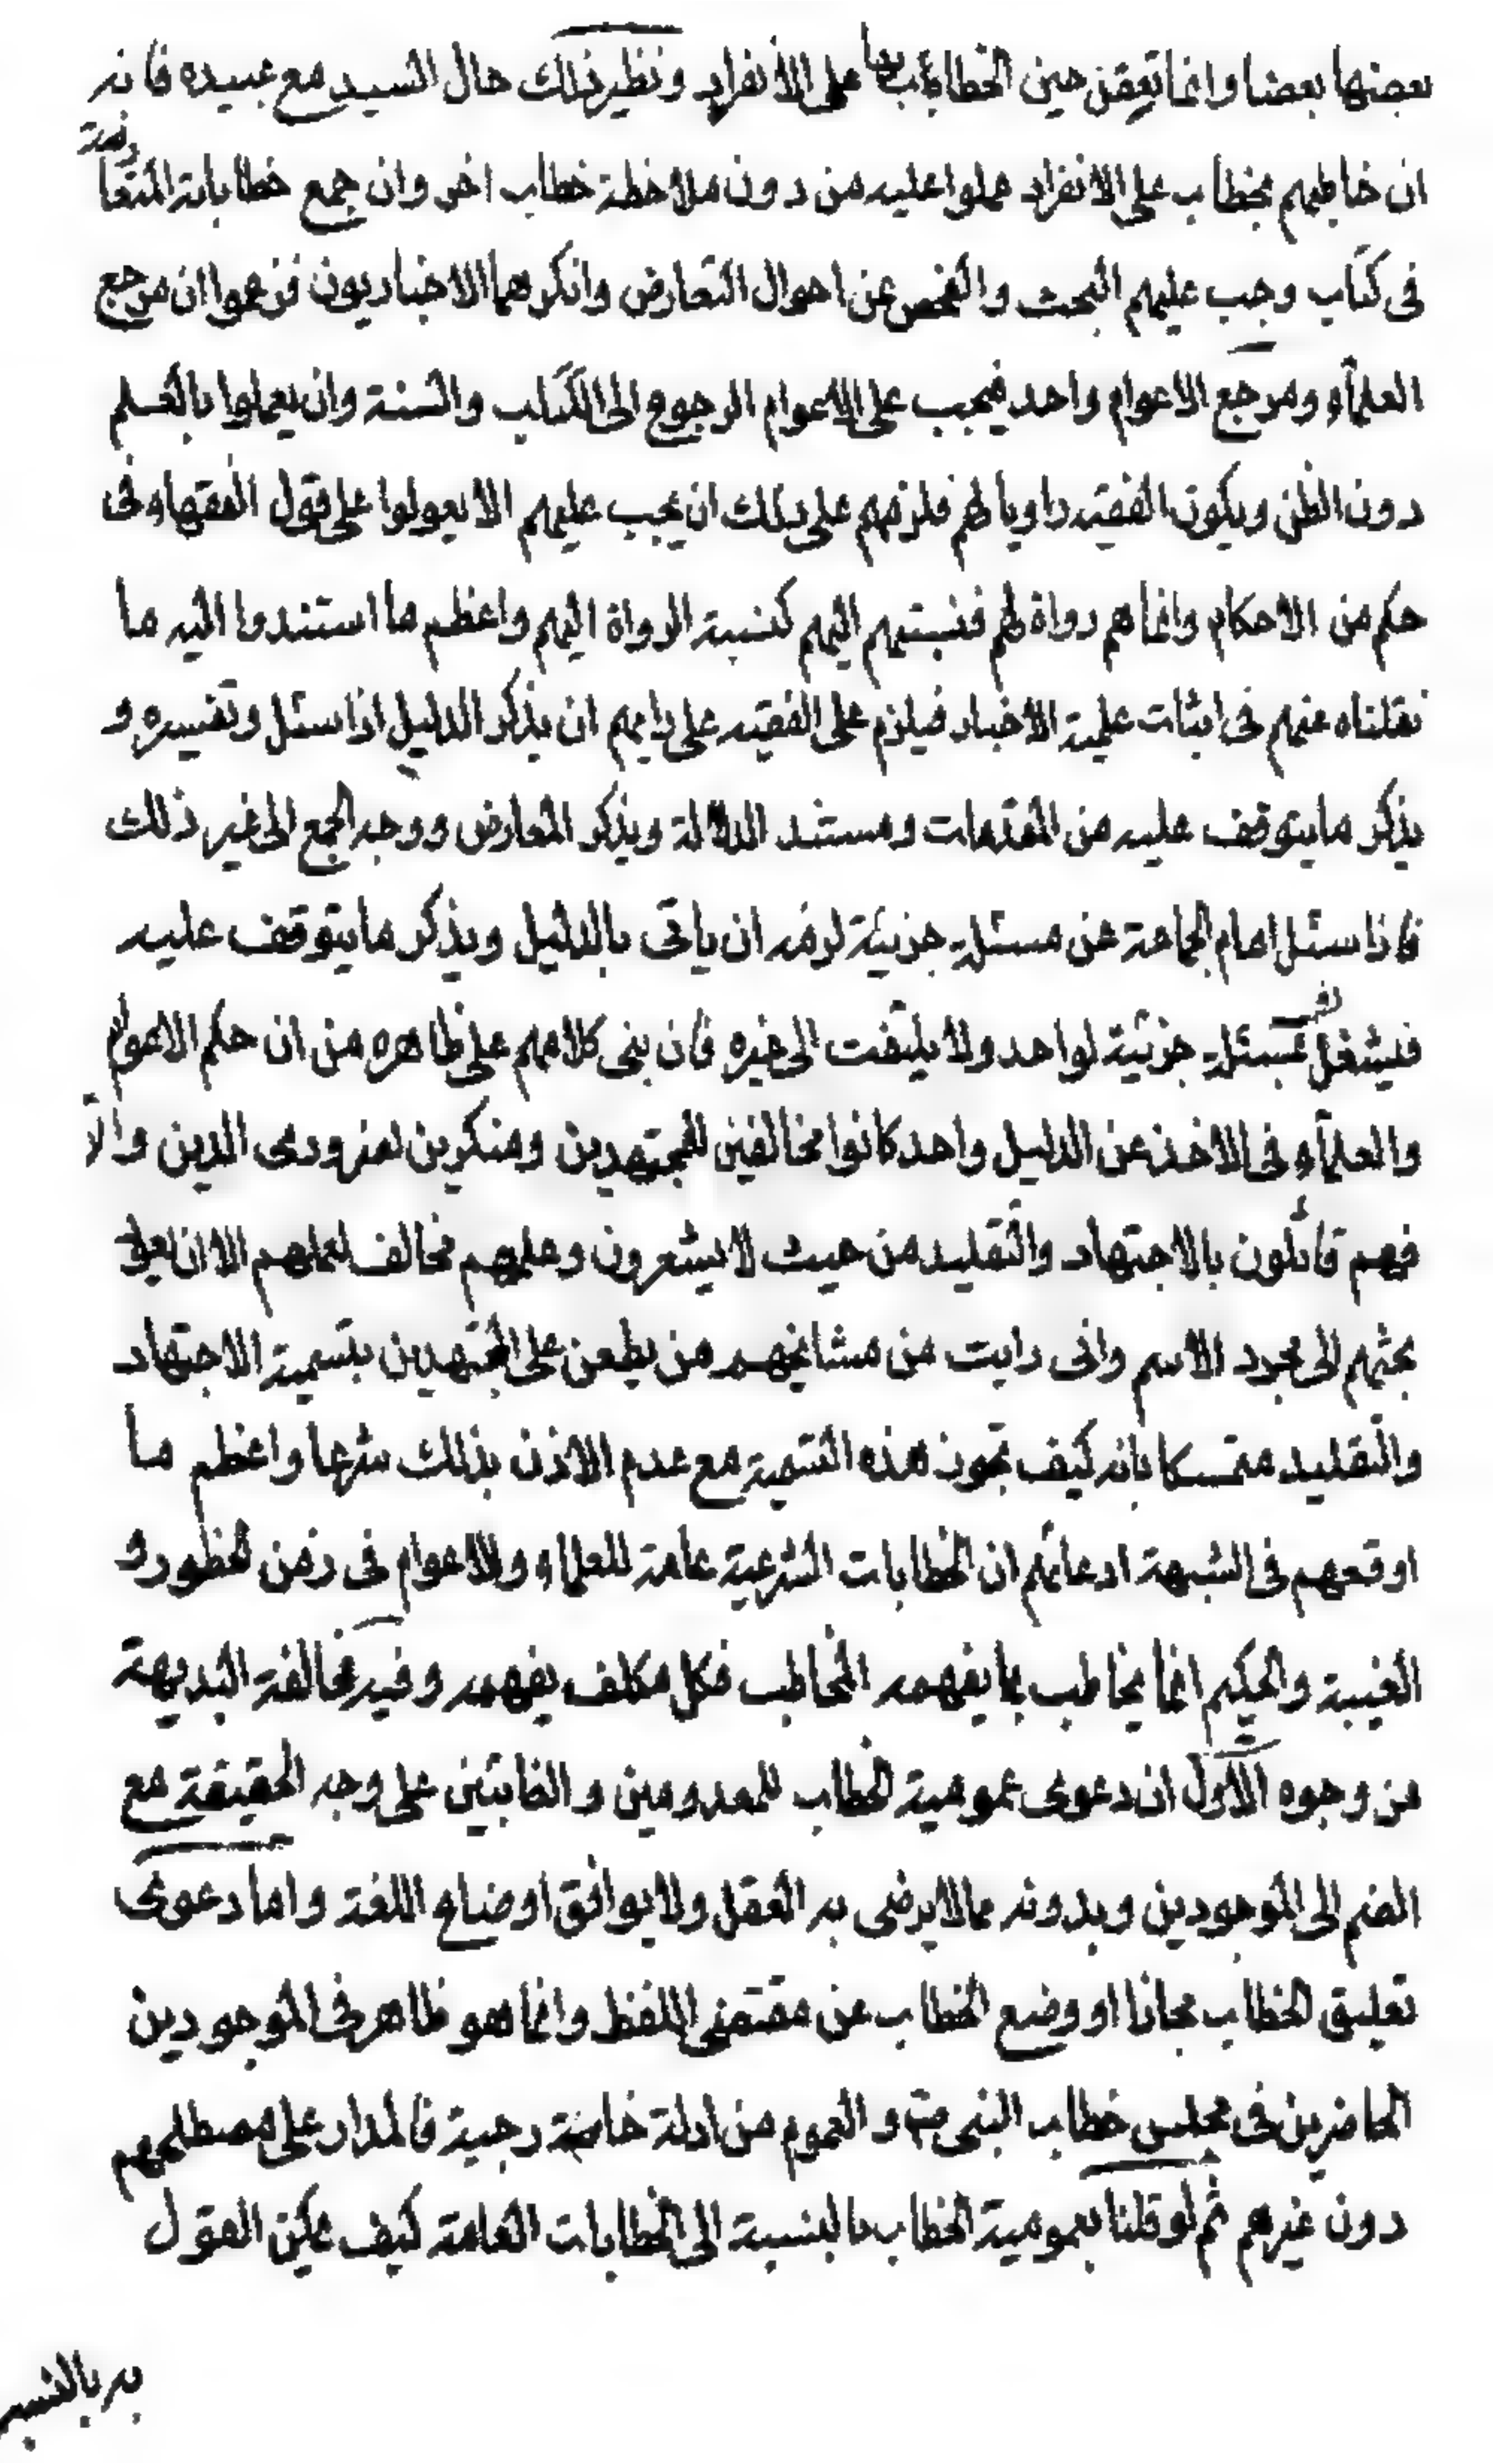 بعضها بعضا وانما تعرض حين الخطاب بها على الانفراد ونظير ذلك حال السيد مع عبيده فانه
ان خاطبهم بخطاب على الانفراد عملوا عليه من دون ملاحظة خطاب اخر وان جمع خطاباته المتعارضة
فى كتاب وجب عليهم البحث والفحص عن احوال التعارض وانكرهما الاخباريون فزعموا ان مرجع
العلمآء ومرجع الاعوام واحد فيجب على الاعوام الرجوع الى الكتاب والسنة وان يعملوا بالعلم
دون الظن ويكون الفقيه راويا لهم فلزمهم على ذلك ان يجب عليهم الا يعولوا على قول الفقهاء فى
حكم من الاحكام وانما هم رواة لهم فنسبتهم اليهم كنسبة الرواة اليهم واعظم ما استندوا اليه ما
نقلناه عنهم فى اثبات علمية الاخبار فيلزم على الفقيه على رايهم ان يذكر الدليل اذا سئل وتفسيره و
يذكر ما يتوقف عليه من المقدمات ومستند الدلالة ويذكر المعارض ووجه الجمع الى غير ذلك
فاذا سئل امام الجماعة عن مسئلة جزئية لزمه ان ياتى بالدليل ويذكر ما يتوقف عليه
فيشغل بمسئلة جزئية لواحد ولا يلتفت الى غيره فان بنى كلامهم على ظاهره من ان حكم الاعوام
والعلمآء فى الاخذ عن الدليل واحد كانوا مخالفين للمجتهدين ومنكرين لضرورى الدين والا
فهم قائلون بالاجتهاد والتقليد من حيث لا يشعرون وعلمهم مخالف لعملهم الا ان يعود
بحثهم الى مجرد الاسم وانى رايت من مشايخهم من يطعن على المجتهدين بتسمية الاجتهاد
والتقليد متمسكا بانه كيف تجوز هذه التسمية مع عدم الاذن بذلك شرعا واعظم ما
اوقعهم فى الشبهة ادعائهم ان الخطابات الشرعية عامة للعلماء وللاعوام فى زمن الحظور و
الغيبة والحكيم انما يخاطب بما يفهمه المخاطب فكل مكلف يفهمه وفيه مخالفة البديهة
من وجوه الاول ان دعوى عمومية الخطاب للمعدومين والغائبين على وجه الحقيقة مع
الضم الى الموجودين وبدونه مما لا يرضى به العقل ولا يوافق اوضاع اللغة واما دعوى
تعليق الخطاب مجازا او وضع الخطاب عن مقتضى اللفظ وانما هو ظاهر فى الموجودين
الحاضرين فى مجلس خطاب النبى ص و العموم من ادلة خارجية فالمدار على مصطلحهم
دون غيرهم ثم لو قلنا بعمومية الخطاب بالنسبة الى الخطابات العامة كيف يمكن القول
به بالنسبة